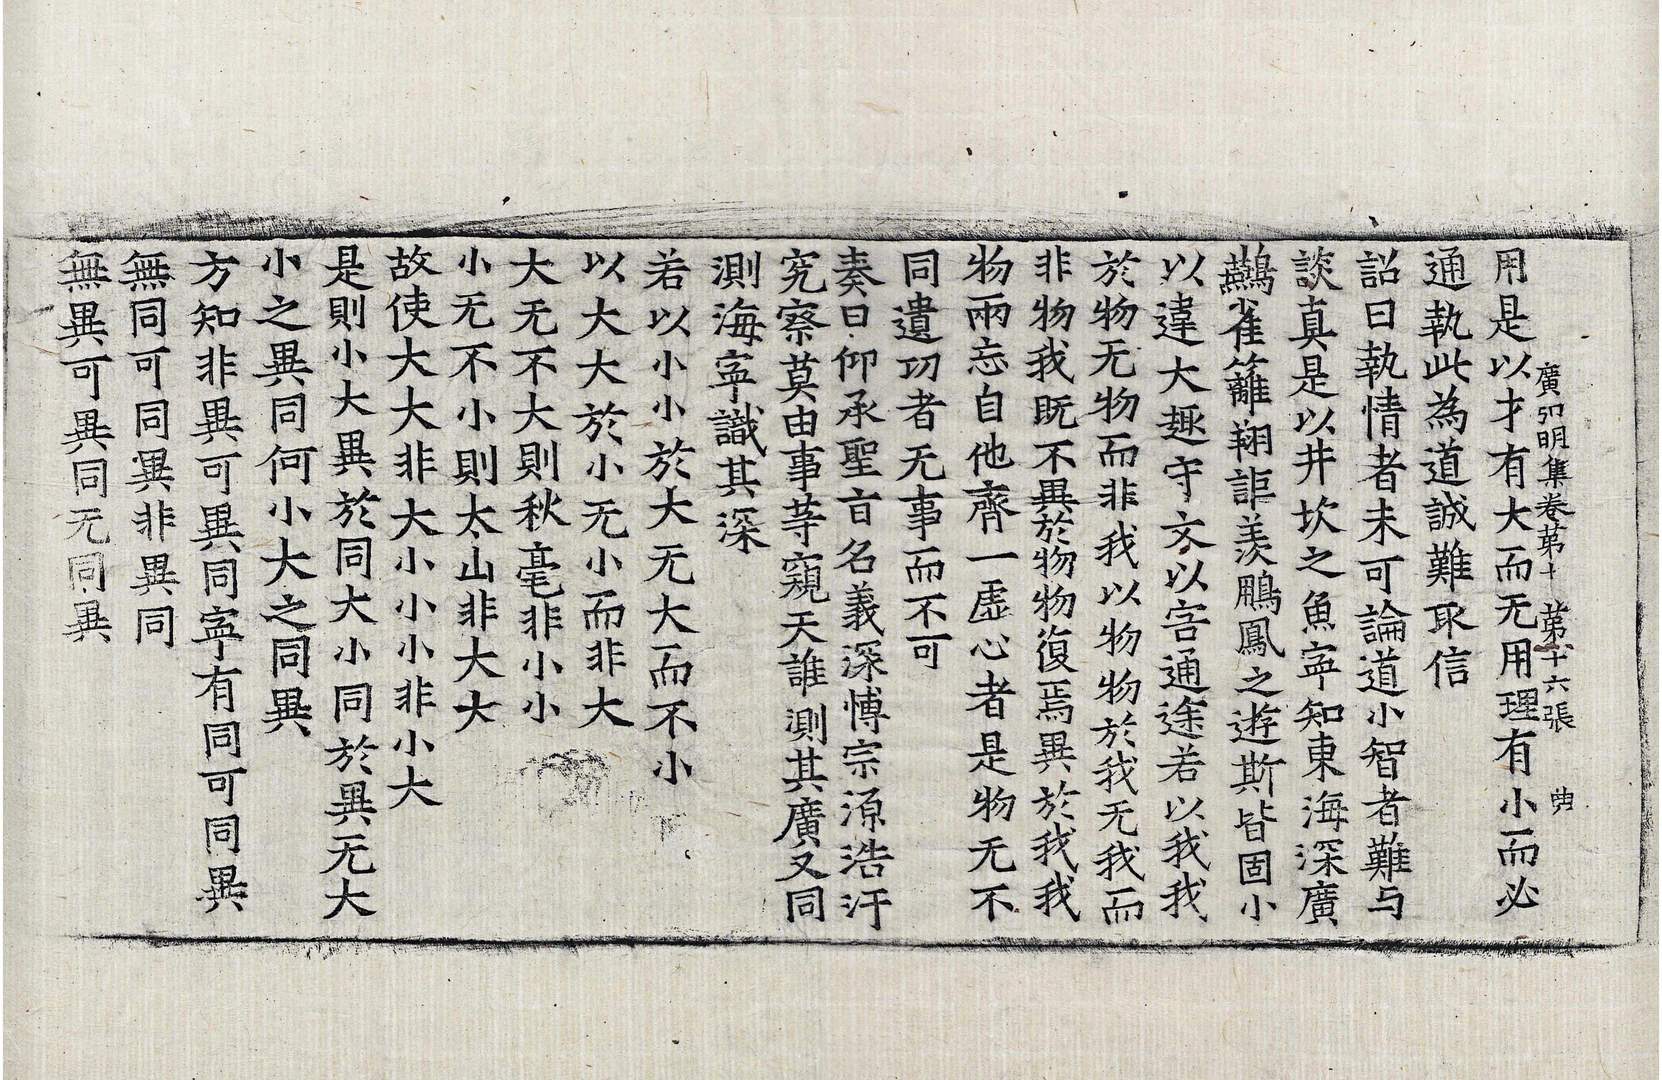 廣弘明集卷第十 第十六張 典
用是以才有大而无用理有小而必
通執此為道誠難取信
詔曰執情者未可論道小智者難与
談真是以井坎之魚寧知東海深廣
鷰雀籬翔詎羨鵬鳳之遊斯皆固小
以違大趣守文以害通途若以我我
於物无物而非我以物物於我无我而
非物我既不異於物物復焉異於我我
物兩忘自他齊一虛心者是物无不
同遺功者无事而不可
奏曰仰承聖旨名義深博宗源浩汗
究察莫由事等窺天誰測其廣又同
測海寧識其深
若以小小於大无大而不小
以大大於小无小而非大
大无不大則秋毫非小小
小无不小則太山非大大
故使大大非大小小非小大
是則小大異於同大小同於異无大
小之異同何小大之同異
方知非異可異同寧有同可同異
無同可同異非異同
無異可異同无同異